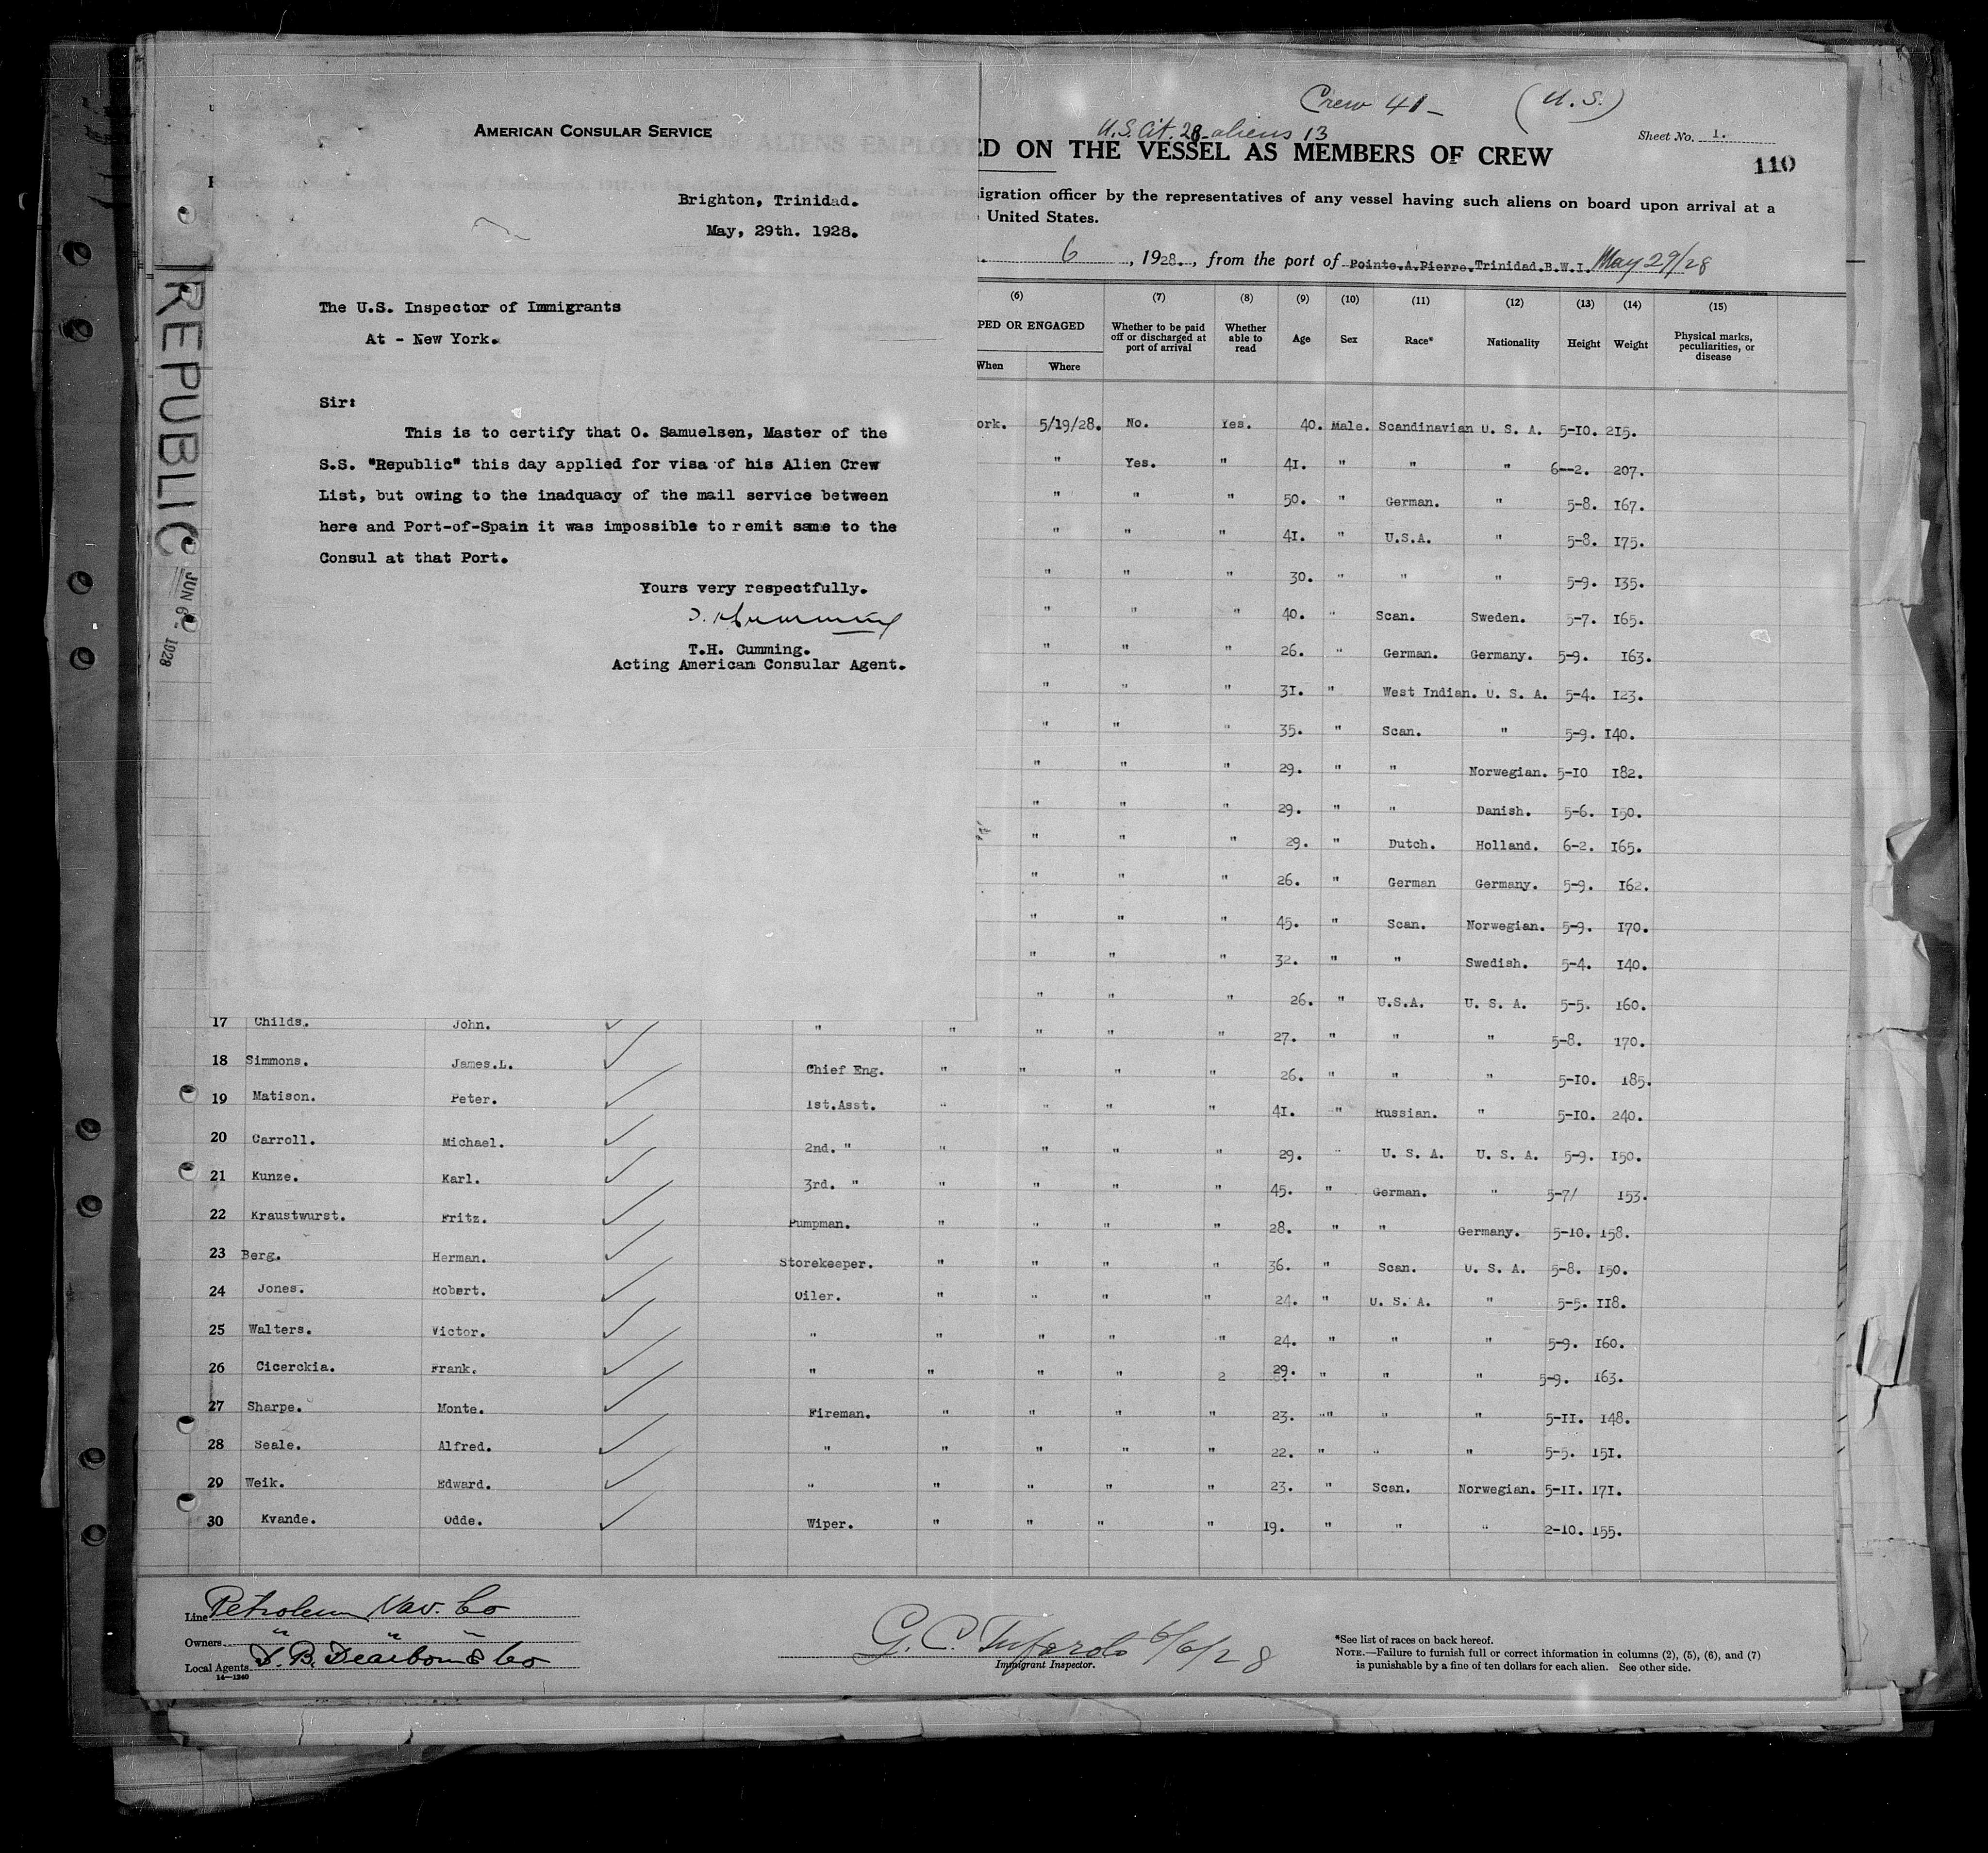 AMERICAN CONSULAR SERVICE
Brighton, Trinidad.
May, 29th. 1928.
The U.S. Inspector of Immigrants
At - New York.
Sir:
This is to certify that O. Samuelsen, Master of the
S.S. "Republic" this day applied for visa of his Alien Crew
List, but owing to the inadquacy of the mail service between
here and Port-of-Spain it was impossible to remit same to the
Consul at that Port.
Yours very respectfully.
T.H. Cumming.
Acting American Consular Agent.
REPUBLIC
JUN 6 - 1928
Crew 41- (U.S.)
U.S. Cit. 28 - aliens 13
Sheet No. 1.
110
ED ON THE VESSEL AS MEMBERS OF CREW
igration officer by the representatives of any vessel having such aliens on board upon arrival at a
United States.
6, 1928., from the port of Pointe.A.Pierre.Trinidad.B.W.I. May 29/28
(6) (7) (8) (9) (10) (11) (12) (13) (14) (15)
PED OR ENGAGED Whether to be paid off or discharged at port of arrival Whether able to read Age Sex Race* Nationality Height Weight Physical marks, peculiarities, or disease
When Where
ork. 5/19/28. No. Yes. 40. Male. Scandinavian U. S. A. 5-10. 215.
" Yes. " 41. " " " 6--2. 207.
" " " 50. " German. " 5-8. 167.
" " " 41. " U.S.A. " 5-8. 175.
" " " 30. " " " 5-9. 135.
" " " 40. " Scan. Sweden. 5-7. 165.
" " " 26. " German. Germany. 5-9. 163.
" " " 31. " West Indian. U. S. A. 5-4. 123.
" " " 35. " Scan. " 5-9. 140.
" " " 29. " " Norwegian. 5-10 182.
" " " 29. " " Danish. 5-6. 150.
" " " 29. " Dutch. Holland. 6-2. 165.
" " " 26. " German Germany. 5-9. 162.
" " " 45. " Scan. Norwegian. 5-9. 170.
" " " 32. " " Swedish. 5-4. 140.
" " " 26. " U.S.A. U. S. A. 5-5. 160.
17 Childs. John. " " " " " 27. " " " 5-8. 170.
18 Simmons. James.L. Chief Eng. " " " " 26. " " " 5-10. 185.
19 Matison. Peter. 1st.Asst. " " " " 41. " Russian. " 5-10. 240.
20 Carroll. Michael. 2nd. " " " " " 29. " U. S. A. U. S. A. 5-9. 150.
21 Kunze. Karl. 3rd. " " " " " 45. " German. " 5-7/ 153.
22 Kraustwurst. Fritz. Pumpman. " " " " 28. " " Germany. 5-10. 158.
23 Berg. Herman. Storekeeper. " " " " 36. " Scan. U. S. A. 5-8. 150.
24 Jones. Robert. Oiler. " " " " 24. " U. S. A. " 5-5. 118.
25 Walters. Victor. " " " " " 24. " " " 5-9. 160.
26 Cicerckia. Frank. " " " " 2 29. " " " 5-9. 163.
27 Sharpe. Monte. Fireman. " " " " 23. "" " " 5-11. 148.
28 Seale. Alfred. " " " " " 22. " " " 5-5. 151.
29 Weik. Edward. " " " " " 23. " Scan. Norwegian. 5-11. 171.
30 Kvande. Odde. Wiper. " " " " 19. " " " 2-10. 155.
Line Petroleum Nav. Co
Owners " " "
Local Agents D. B. Dearborn & Co
14-1240
G. C. 6/6/28
Immigrant Inspector.
*See list of races on back hereof.
NOTE.—Failure to furnish full or correct information in columns (2), (5), (6), and (7)
is punishable by a fine of ten dollars for each alien. See other side.